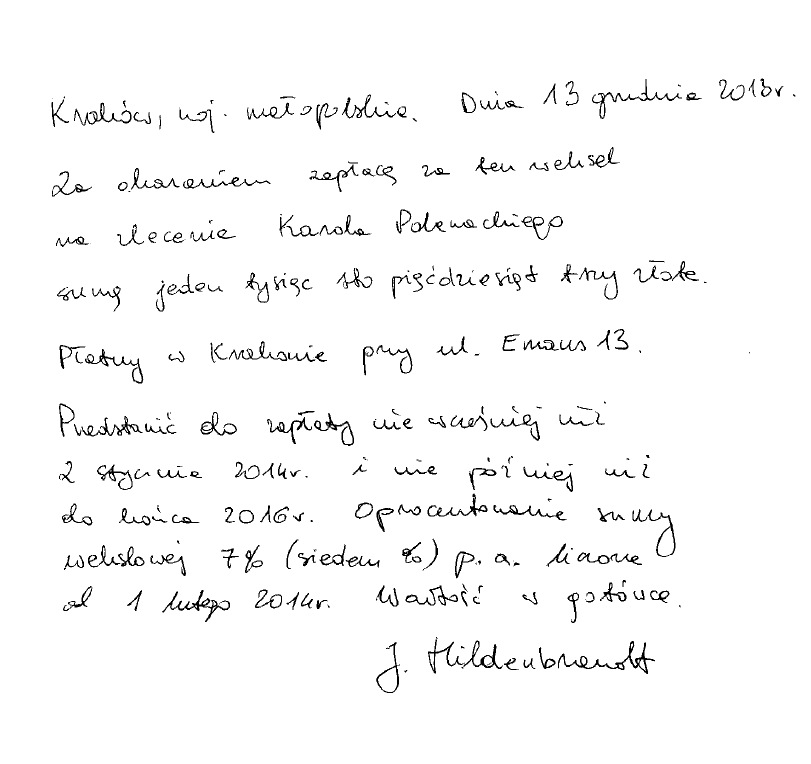 Kraków, woj. małopolskie. Dnia 13 grudnia 2013r.
Za okazaniem zapłacę za ten weksel
na zlecenie Karola Polewackiego
sumę jeden tysiąc sto pięćdziesiąt trzy złote.
Płatny w Krakowie przy ul. Emaus 13.
Przedstawić do zapłaty nie wcześniej niż
2 stycznia 2014r. i nie później niż
do końca 2016r. Oprocentowanie sumy
wekslowej 7% (siedem %) p. a. liczone
od 1 lutego 2014r. Wartość w gotówce.
J. Hildenbrandt